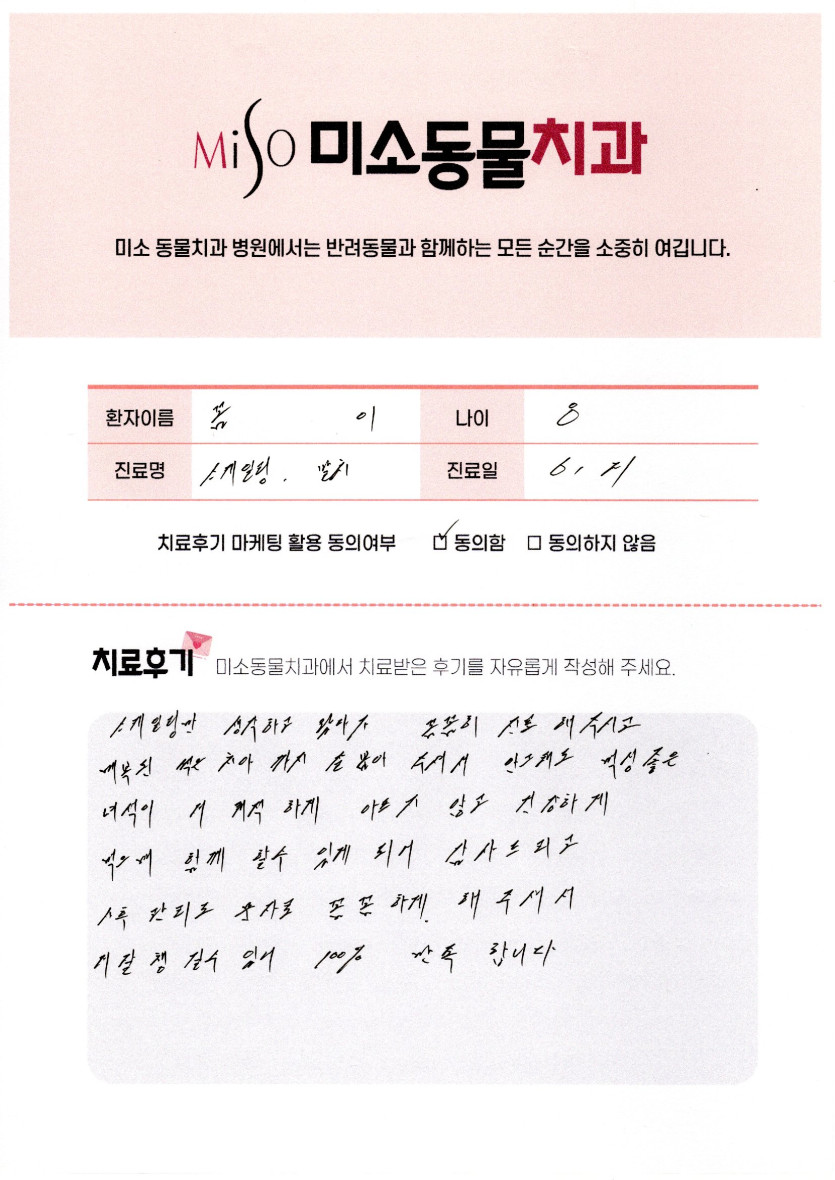 MiSO 미소동물치과
미소 동물치과 병원에서는 반려동물과 함께하는 모든 순간을 소중히 여깁니다.
환자이름 꼼 이 나이 8
진료명 스케일링. 발치 진료일 6. 21
치료후기 마케팅 활용 동의여부 ☑ 동의함 □ 동의하지 않음
치료후기 미소동물치과에서 치료받은 후기를 자유롭게 작성해 주세요.
스케일링만 생각하고 왔다가 꼼꼼히 진료 해 주시고
썩은 치아 까지 손 봐 주셔서 안그래도 먹성 좋은
녀석이 쾌적 하게 아프지 않고 건강하게
먹으며 함께 할수 있게 되어 감사드리고
사후 관리도 문자로 꼼꼼 하게 해 주셔서
더 잘 챙길수 있어 100% 만족 합니다